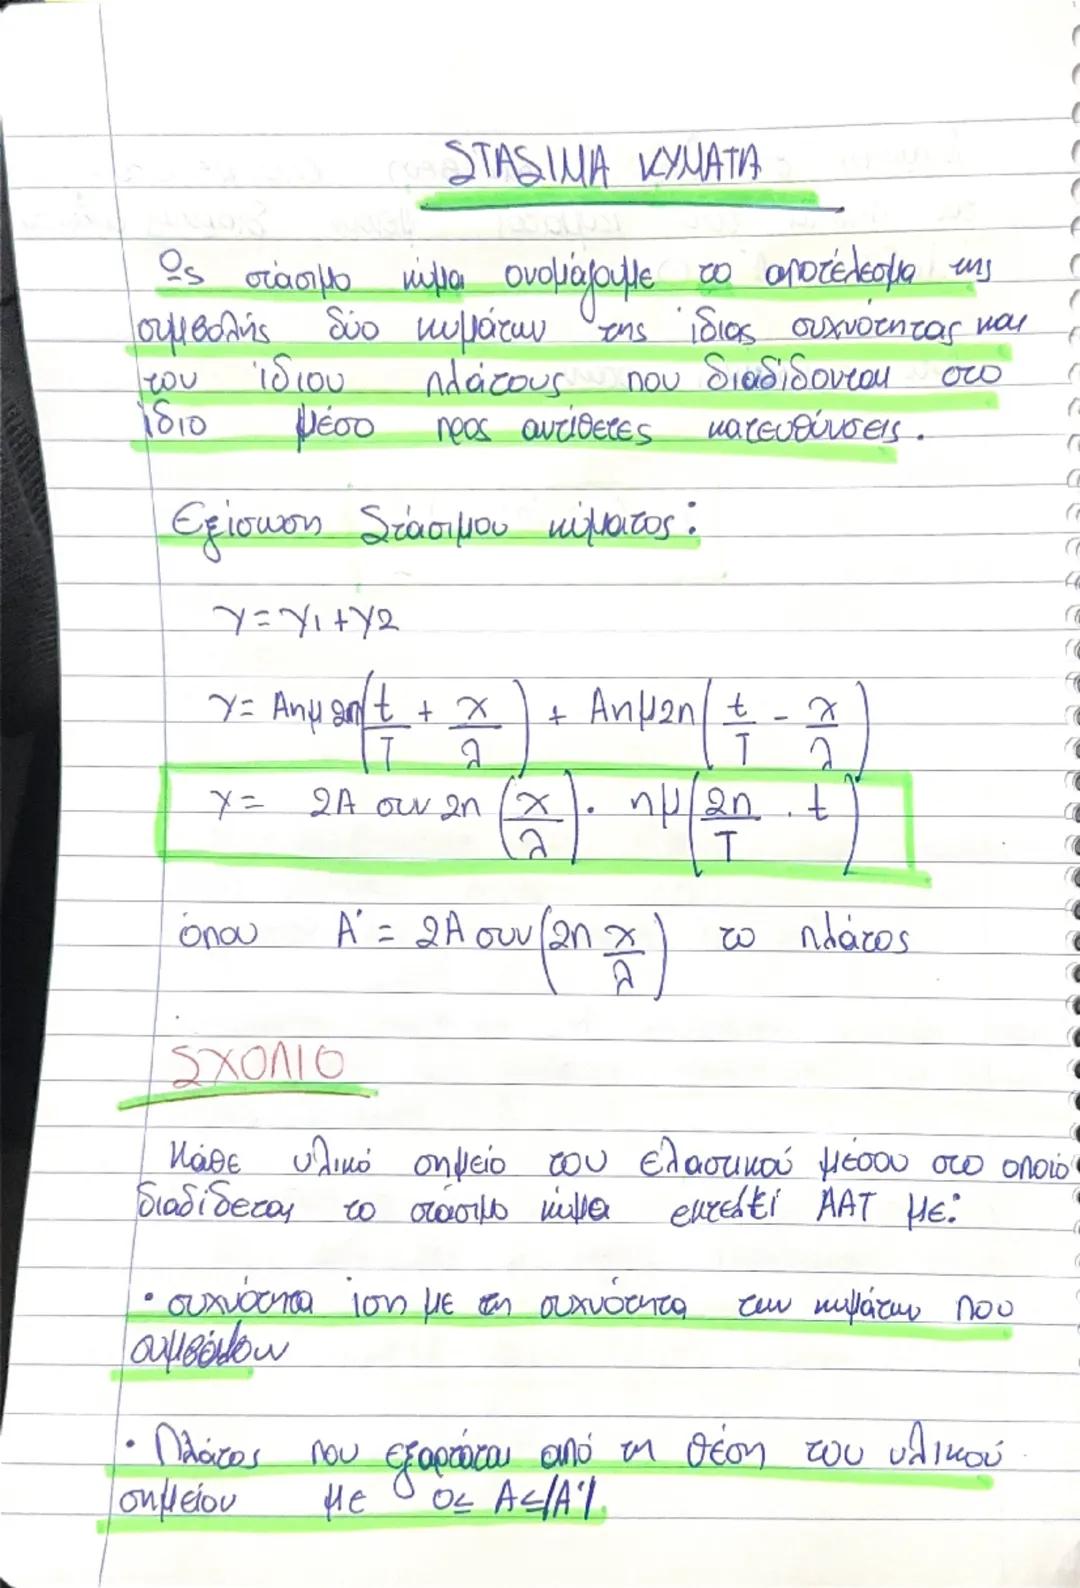 ΣΤΑΣΙΜΑ ΚΥΜΑΤΑ
Ως στάσιμο κύμα ονομάζουμε το αποτέλεσμα της
συμβολής δύο κυμάτων της ίδιας συχνότητας και
του ίδιου πλάτους που διαδίδονται στο
ίδιο μέσο προς αντίθετες κατευθύνσεις.
Εξίσωση Στάσιμου κύματος:
y = y1 + y2
y = Αημ2π(t/T + x/λ) + Αημ2π(t/T - x/λ)
y = 2A συν 2π (x/λ) · ημ(2π/T · t)
όπου Α' = 2A συν(2π x/λ) το πλάτος
ΣΧΟΛΙΟ
Κάθε υλικό σημείο του ελαστικού μέσου στο οποίο
διαδίδεται το στάσιμο κύμα εκτελεί ΑΑΤ με:
• συχνότητα ίση με τη συχνότητα των κυμάτων που
συμβάλουν
• Πλάτος που εξαρτάται από τη θέση του υλικού
σημείου με 0≤ A≤|A'|